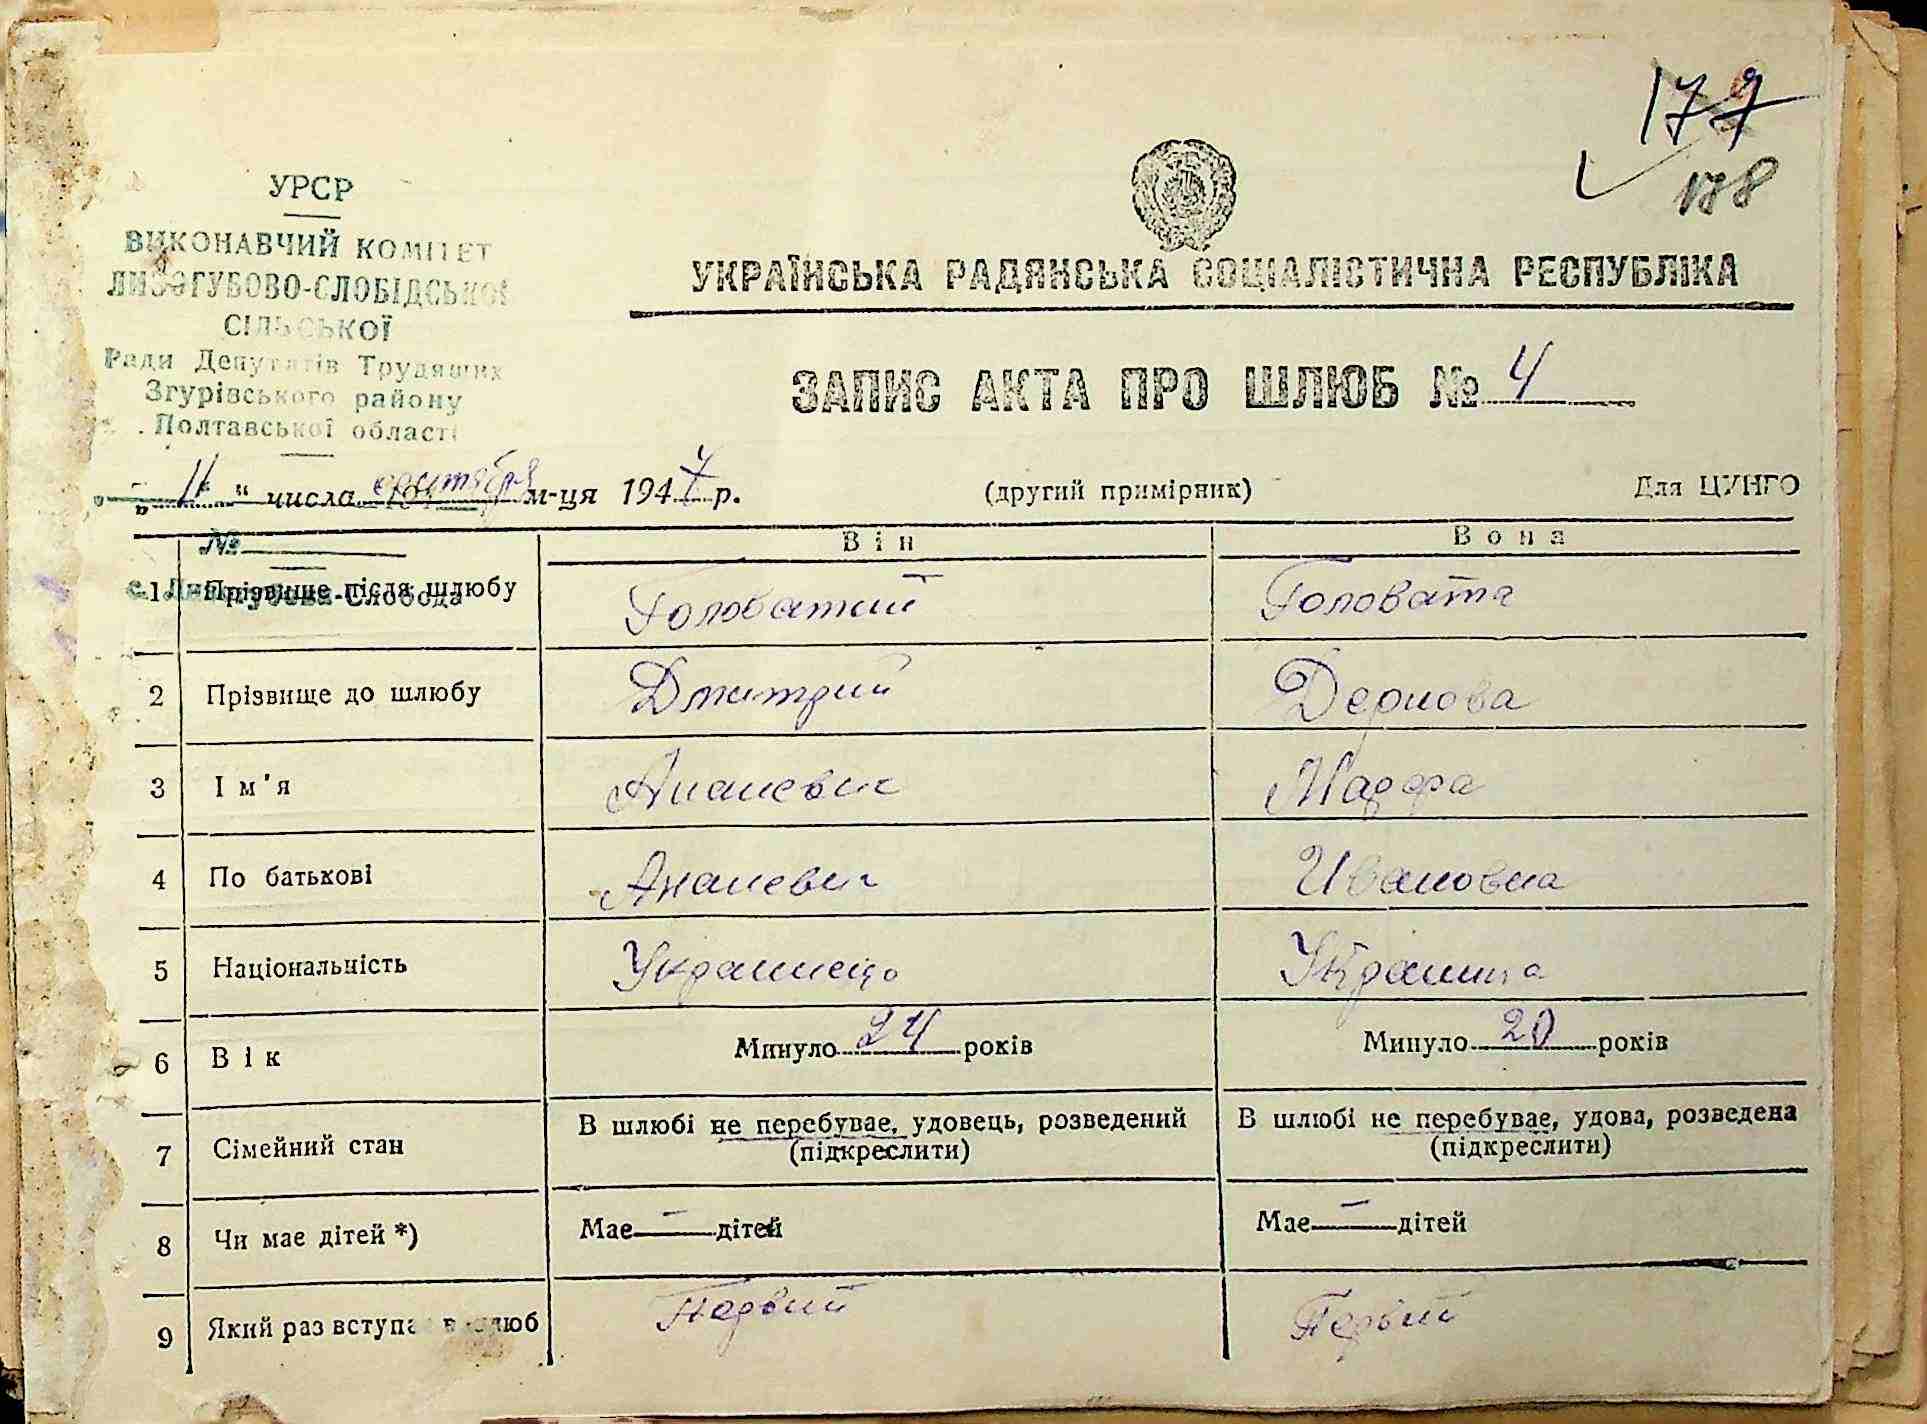 177
178
УРСР
ВИКОНАВЧИЙ КОМІТЕТ
ЛИЗОГУБОВО-СЛОБІДСЬКОЇ
СІЛЬСЬКОЇ
Ради Депутатів Трудящих
Згурівського району
Полтавської області
УКРАЇНСЬКА РАДЯНСЬКА СОЦІАЛІСТИЧНА РЕСПУБЛІКА
ЗАПИС АКТА ПРО ШЛЮБ № 4
„11“ числа сентября м-ця 1947 р. (другий примірник) Для ЦУНГО
№
с. Лизогубова-Слобода
Він Вона
1 Прізвище після шлюбу Головатий Головата
2 Прізвище до шлюбу Дмитрий Дернова
3 Ім'я Ананевич Марфа
4 По батькові Ананевич Ивановна
5 Національність Украинець Украинка
6 Вік Минуло 24 років Минуло 20 років
7 Сімейний стан В шлюбі не перебуває, удовець, розведений (підкреслити) В шлюбі не перебуває, удова, розведена (підкреслити)
8 Чи має дітей *) Має — дітей Має — дітей
9 Який раз вступає в шлюб Первий Первий